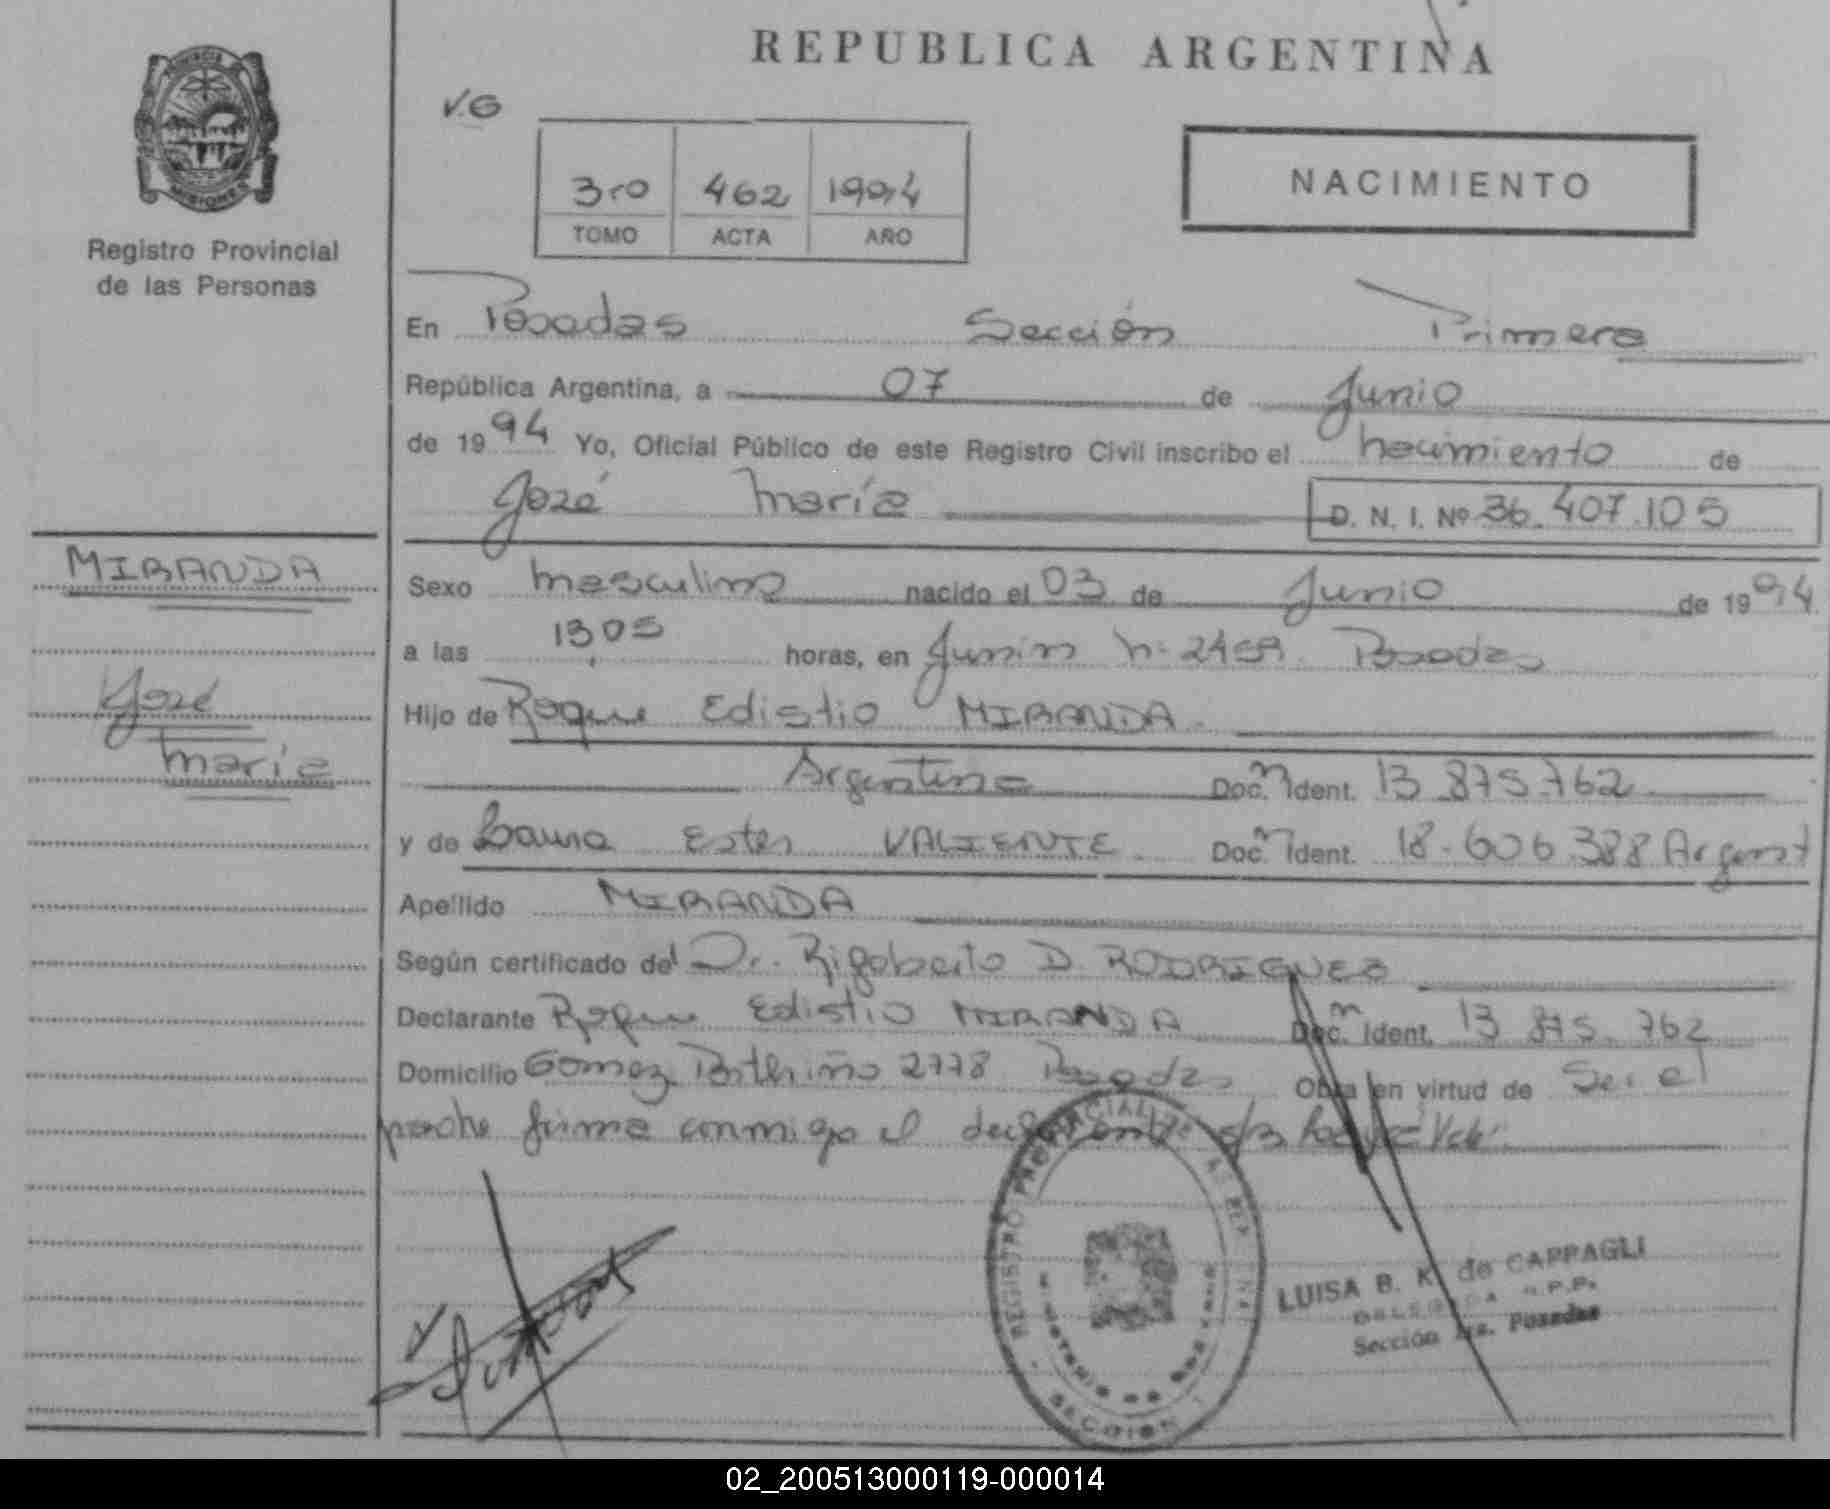 REPUBLICA ARGENTINA
V.G
PROVINCIA
MISIONES
Registro Provincial
de las Personas
3ro 462 1994
TOMO ACTA AÑO
NACIMIENTO
En Posadas Sección Primera
República Argentina, a 07 de Junio
de 1994 Yo, Oficial Público de este Registro Civil inscribo el nacimiento de
José María D. N. I. Nº 36.407.105
MIRANDA
José
María
Sexo masculino nacido el 03 de Junio de 1994.
a las 1305 horas, en Junín Nº 2459. Posadas
Hijo de Roque Edistio MIRANDA
Argentina Doc. Ident. 13.875.762
y de Laura Ester VALIENTE Doc. Ident. 18.606.388 Argent
Apellido MIRANDA
Según certificado del Dr. Rigoberto D. RODRIGUEZ
Declarante Roque Edistio MIRANDA Doc. Ident. 13.875.762
Domicilio Gomez 2778 Posadas Obra en virtud de Ser el
padre firma conmigo el declarante
REGISTRO PROVINCIAL DE LAS PERSONAS
MINISTERIO DE
SECCION 1
LUISA B. K. de CAPPAGLI
DELEGADA R.P.P.
Sección 1ra. Posadas
02_200513000119-000014